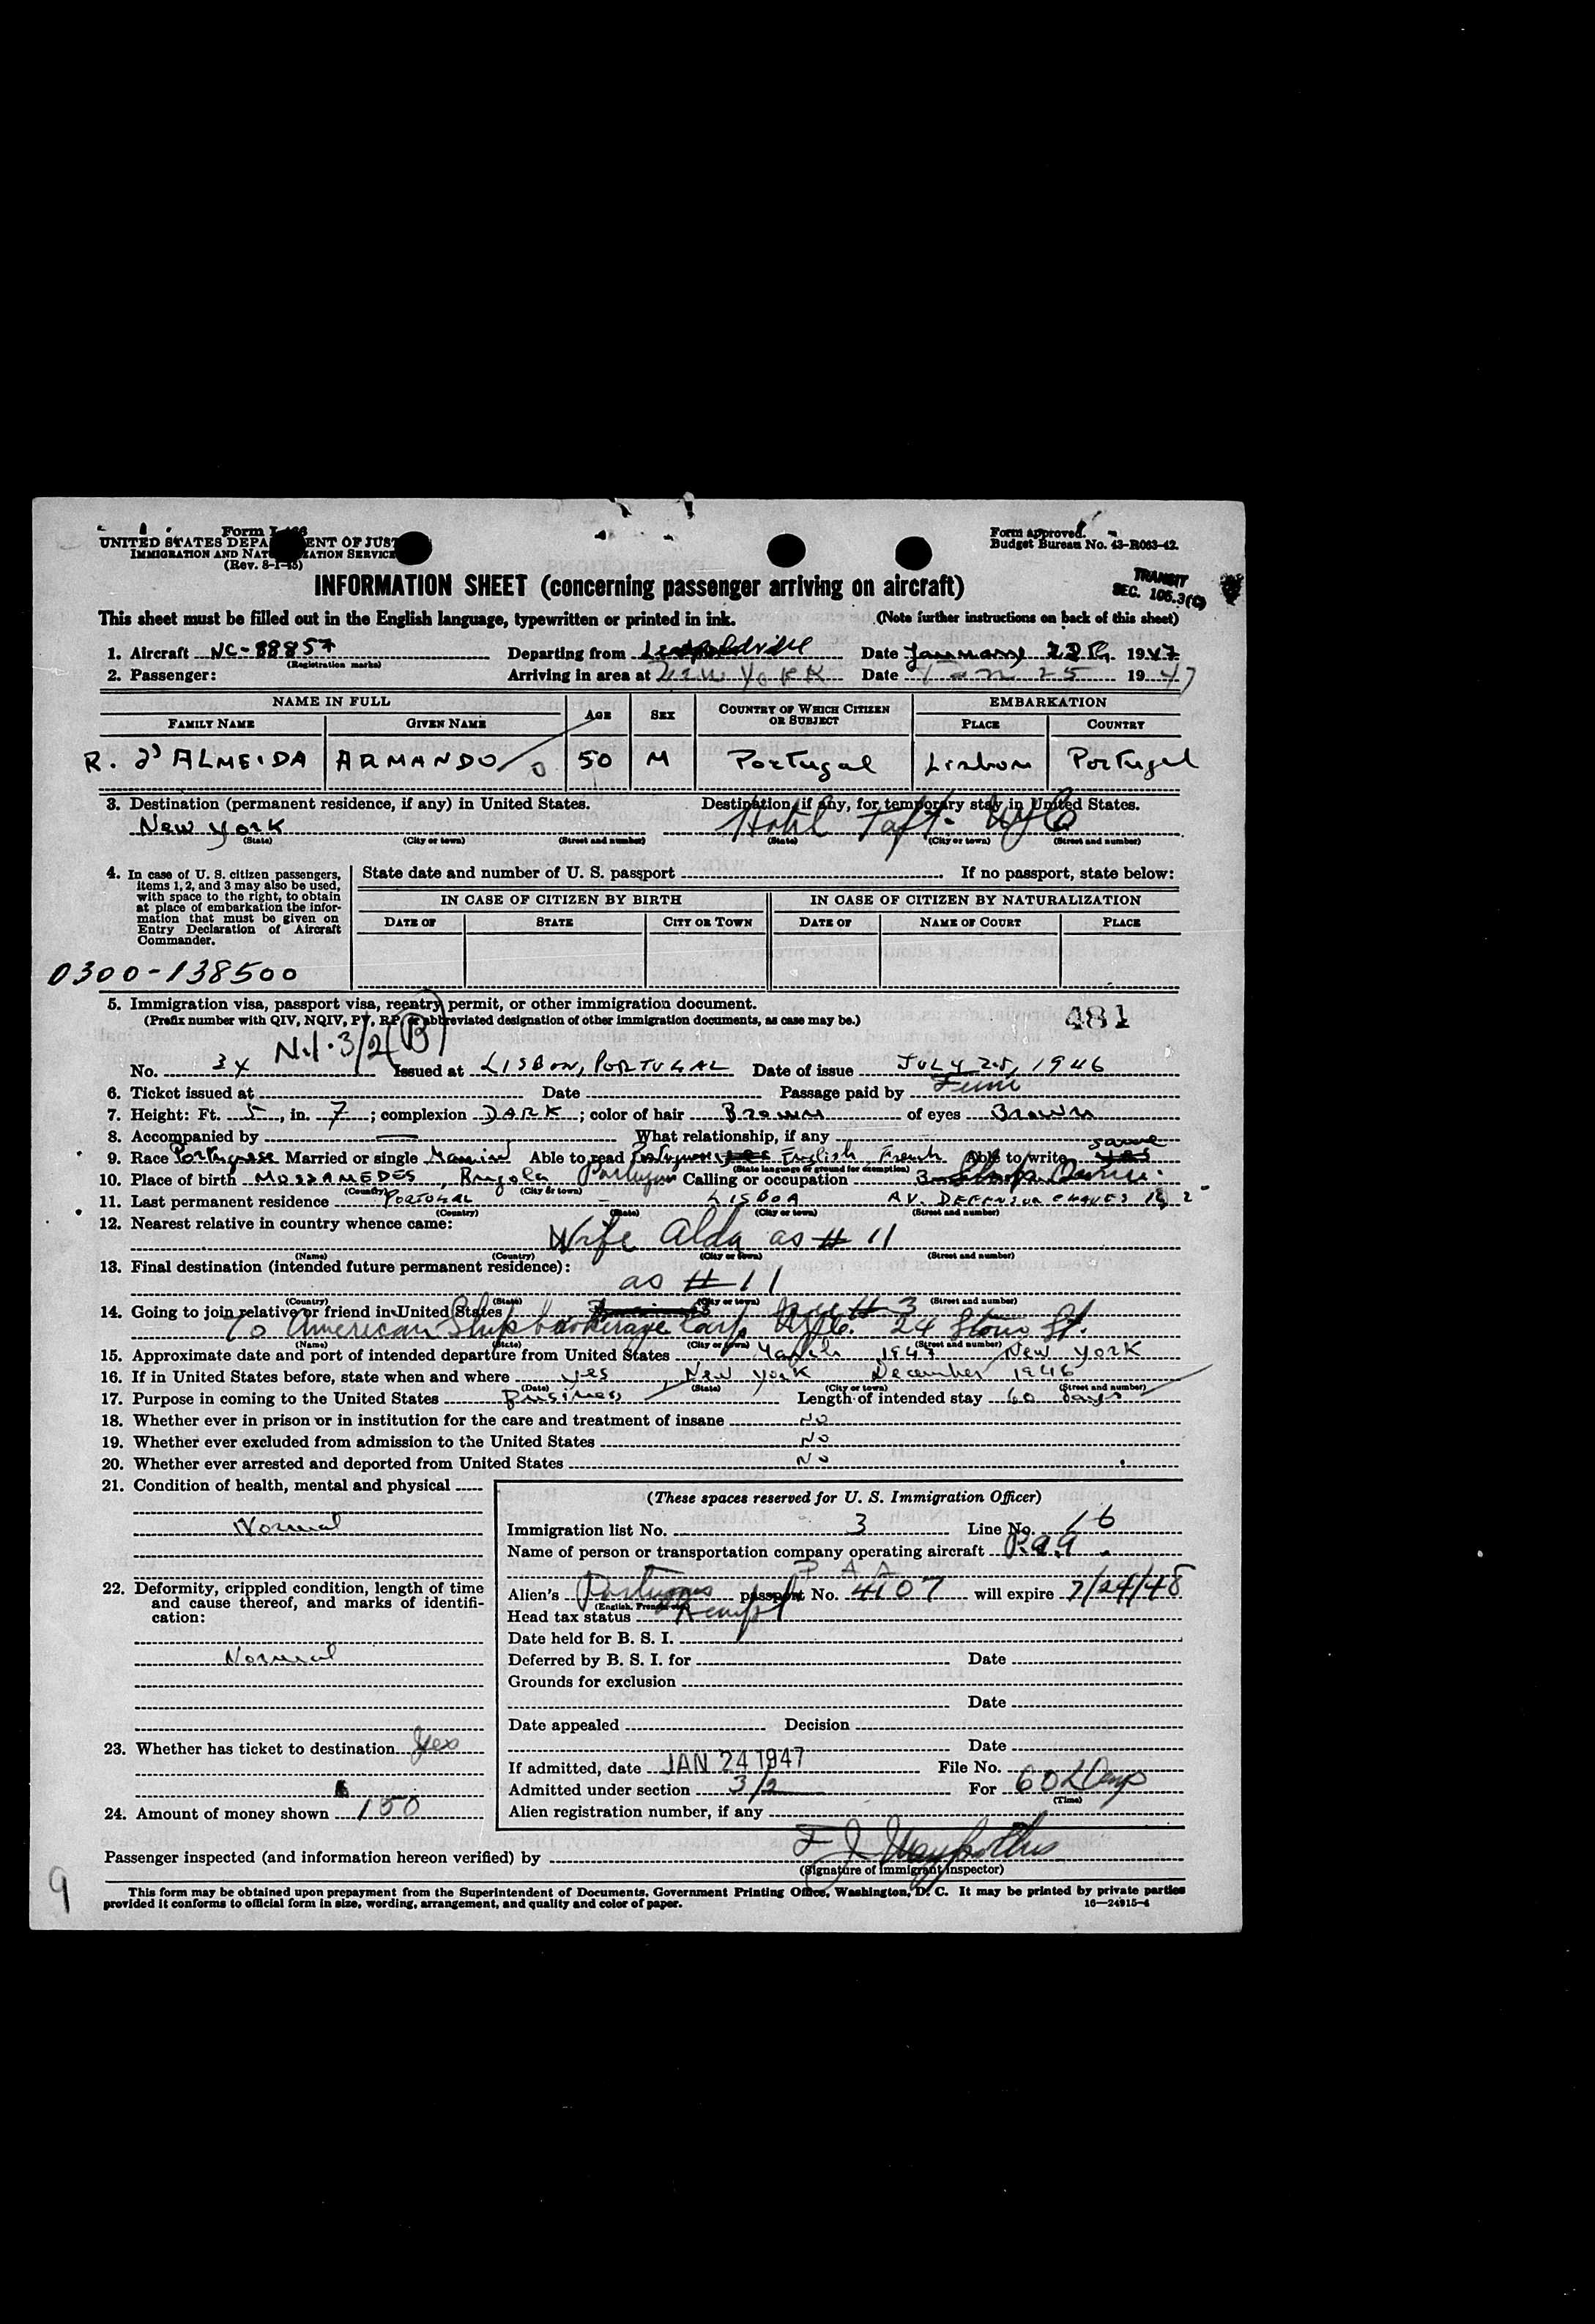 Form I-466
UNITED STATES DEPARTMENT OF JUSTICE
IMMIGRATION AND NATURALIZATION SERVICE
(Rev. 8-1-45)
Form approved.
Budget Bureau No. 43-R063-42.
INFORMATION SHEET (concerning passenger arriving on aircraft)
TRANSIT
SEC. 106.3(C)
This sheet must be filled out in the English language, typewritten or printed in ink. (Note further instructions on back of this sheet)
1. Aircraft NC-88857 Departing from Leopoldville Date January 22 1947
(Registration marks)
2. Passenger: Arriving in area at New York Date Jan 25 1947
NAME IN FULL AGE SEX COUNTRY OF WHICH CITIZEN OR SUBJECT EMBARKATION
FAMILY NAME GIVEN NAME PLACE COUNTRY
R. d'ALMEIDA ARMANDO 50 M Portugal Lisbon Portugal
3. Destination (permanent residence, if any) in United States. Destination, if any, for temporary stay in United States.
New York Hotel Taft - NYC
(State) (City or town) (Street and number) (State) (City or town) (Street and number)
4. In case of U. S. citizen passengers, items 1, 2, and 3 may also be used, with space to the right, to obtain at place of embarkation the information that must be given on Entry Declaration of Aircraft Commander.
State date and number of U. S. passport If no passport, state below:
IN CASE OF CITIZEN BY BIRTH IN CASE OF CITIZEN BY NATURALIZATION
DATE OF STATE CITY OR TOWN DATE OF NAME OF COURT PLACE
0300-138500
5. Immigration visa, passport visa, reentry permit, or other immigration document.
(Prefix number with QIV, NQIV, PV, RP, or abbreviated designation of other immigration documents, as case may be.)
481
N.I. 3/2(B)
No. 34 Issued at LISBON, PORTUGAL Date of issue JULY 25, 1946
6. Ticket issued at Date Passage paid by Firm
7. Height: Ft. 5, in. 7; complexion DARK; color of hair Brown of eyes Brown
8. Accompanied by — What relationship, if any
9. Race Portuguese Married or single Married Able to read Portuguese yes English French Able to write yes same
(State language or ground for exemption)
10. Place of birth MOSSAMEDES, Angola Portugal Calling or occupation 3 Ships Owner
(Country) (City or town)
11. Last permanent residence PORTUGAL - LISBOA AV. DEFENSOR CHAVES
(Country) (State) (City or town) (Street and number)
12. Nearest relative in country whence came:
Wife Alda as # 11
(Name) (Country) (City or town) (Street and number)
13. Final destination (intended future permanent residence):
as # 11
(Country) (State) (City or town) (Street and number)
14. Going to join relative or friend in United States # 3
To American Shipbrokerage Corp NYC. 24 Stone St.
(Name) (State) (City or town) (Street and number)
15. Approximate date and port of intended departure from United States March 1947 New York
16. If in United States before, state when and where yes, New York December 1946
(Date) (State) (City or town) (Street and number)
17. Purpose in coming to the United States Business Length of intended stay 60 days
18. Whether ever in prison or in institution for the care and treatment of insane No
19. Whether ever excluded from admission to the United States No
20. Whether ever arrested and deported from United States No
21. Condition of health, mental and physical
Normal
22. Deformity, crippled condition, length of time and cause thereof, and marks of identification:
Normal
23. Whether has ticket to destination Yes
24. Amount of money shown 150
(These spaces reserved for U. S. Immigration Officer)
Immigration list No. 3 Line No. 16
Name of person or transportation company operating aircraft P.A.A.
P A A
Alien's Portuguese passport No. 4107 will expire 7/24/48
(English, French, etc.)
Head tax status Exempt
Date held for B. S. I.
Deferred by B. S. I. for Date
Grounds for exclusion
Date
Date appealed Decision
Date
If admitted, date JAN 24 1947 File No.
Admitted under section 3/2 For 60 Days
(Time)
Alien registration number, if any
Passenger inspected (and information hereon verified) by
(Signature of immigrant inspector)
9
This form may be obtained upon prepayment from the Superintendent of Documents, Government Printing Office, Washington, D. C. It may be printed by private parties
provided it conforms to official form in size, wording, arrangement, and quality and color of paper. 16—24915-4